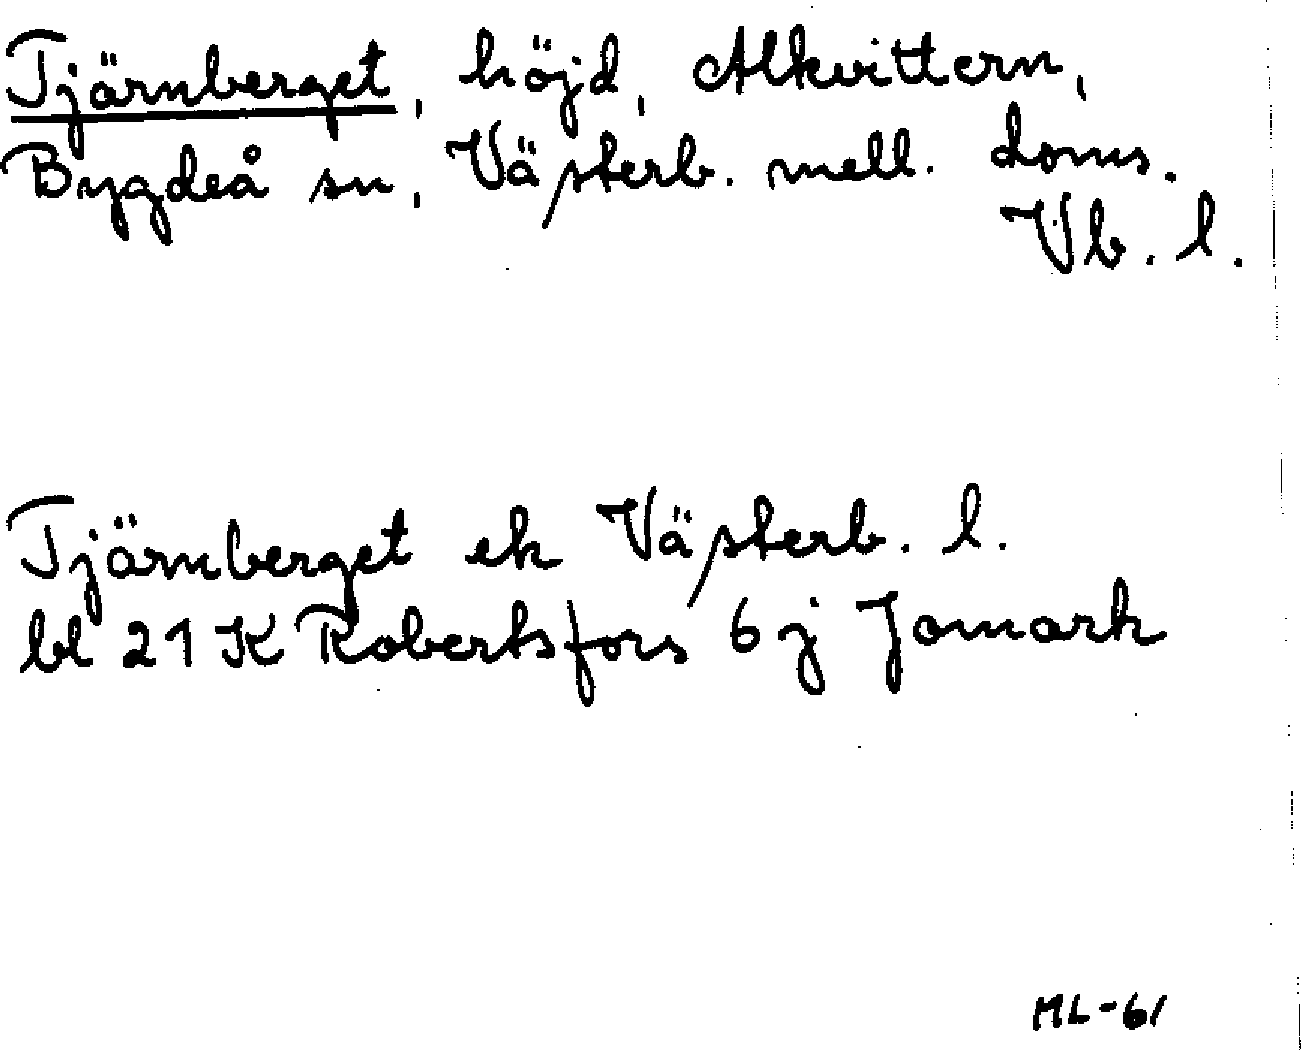 Tjärnberget, höjd, Alkvittern,
Bygdeå sn, Västerb. mell. doms.
Vb. l.
Tjärnberget ek Västerb. l.
bl 21 K Robertsfors 6 j Jomark
ML-61